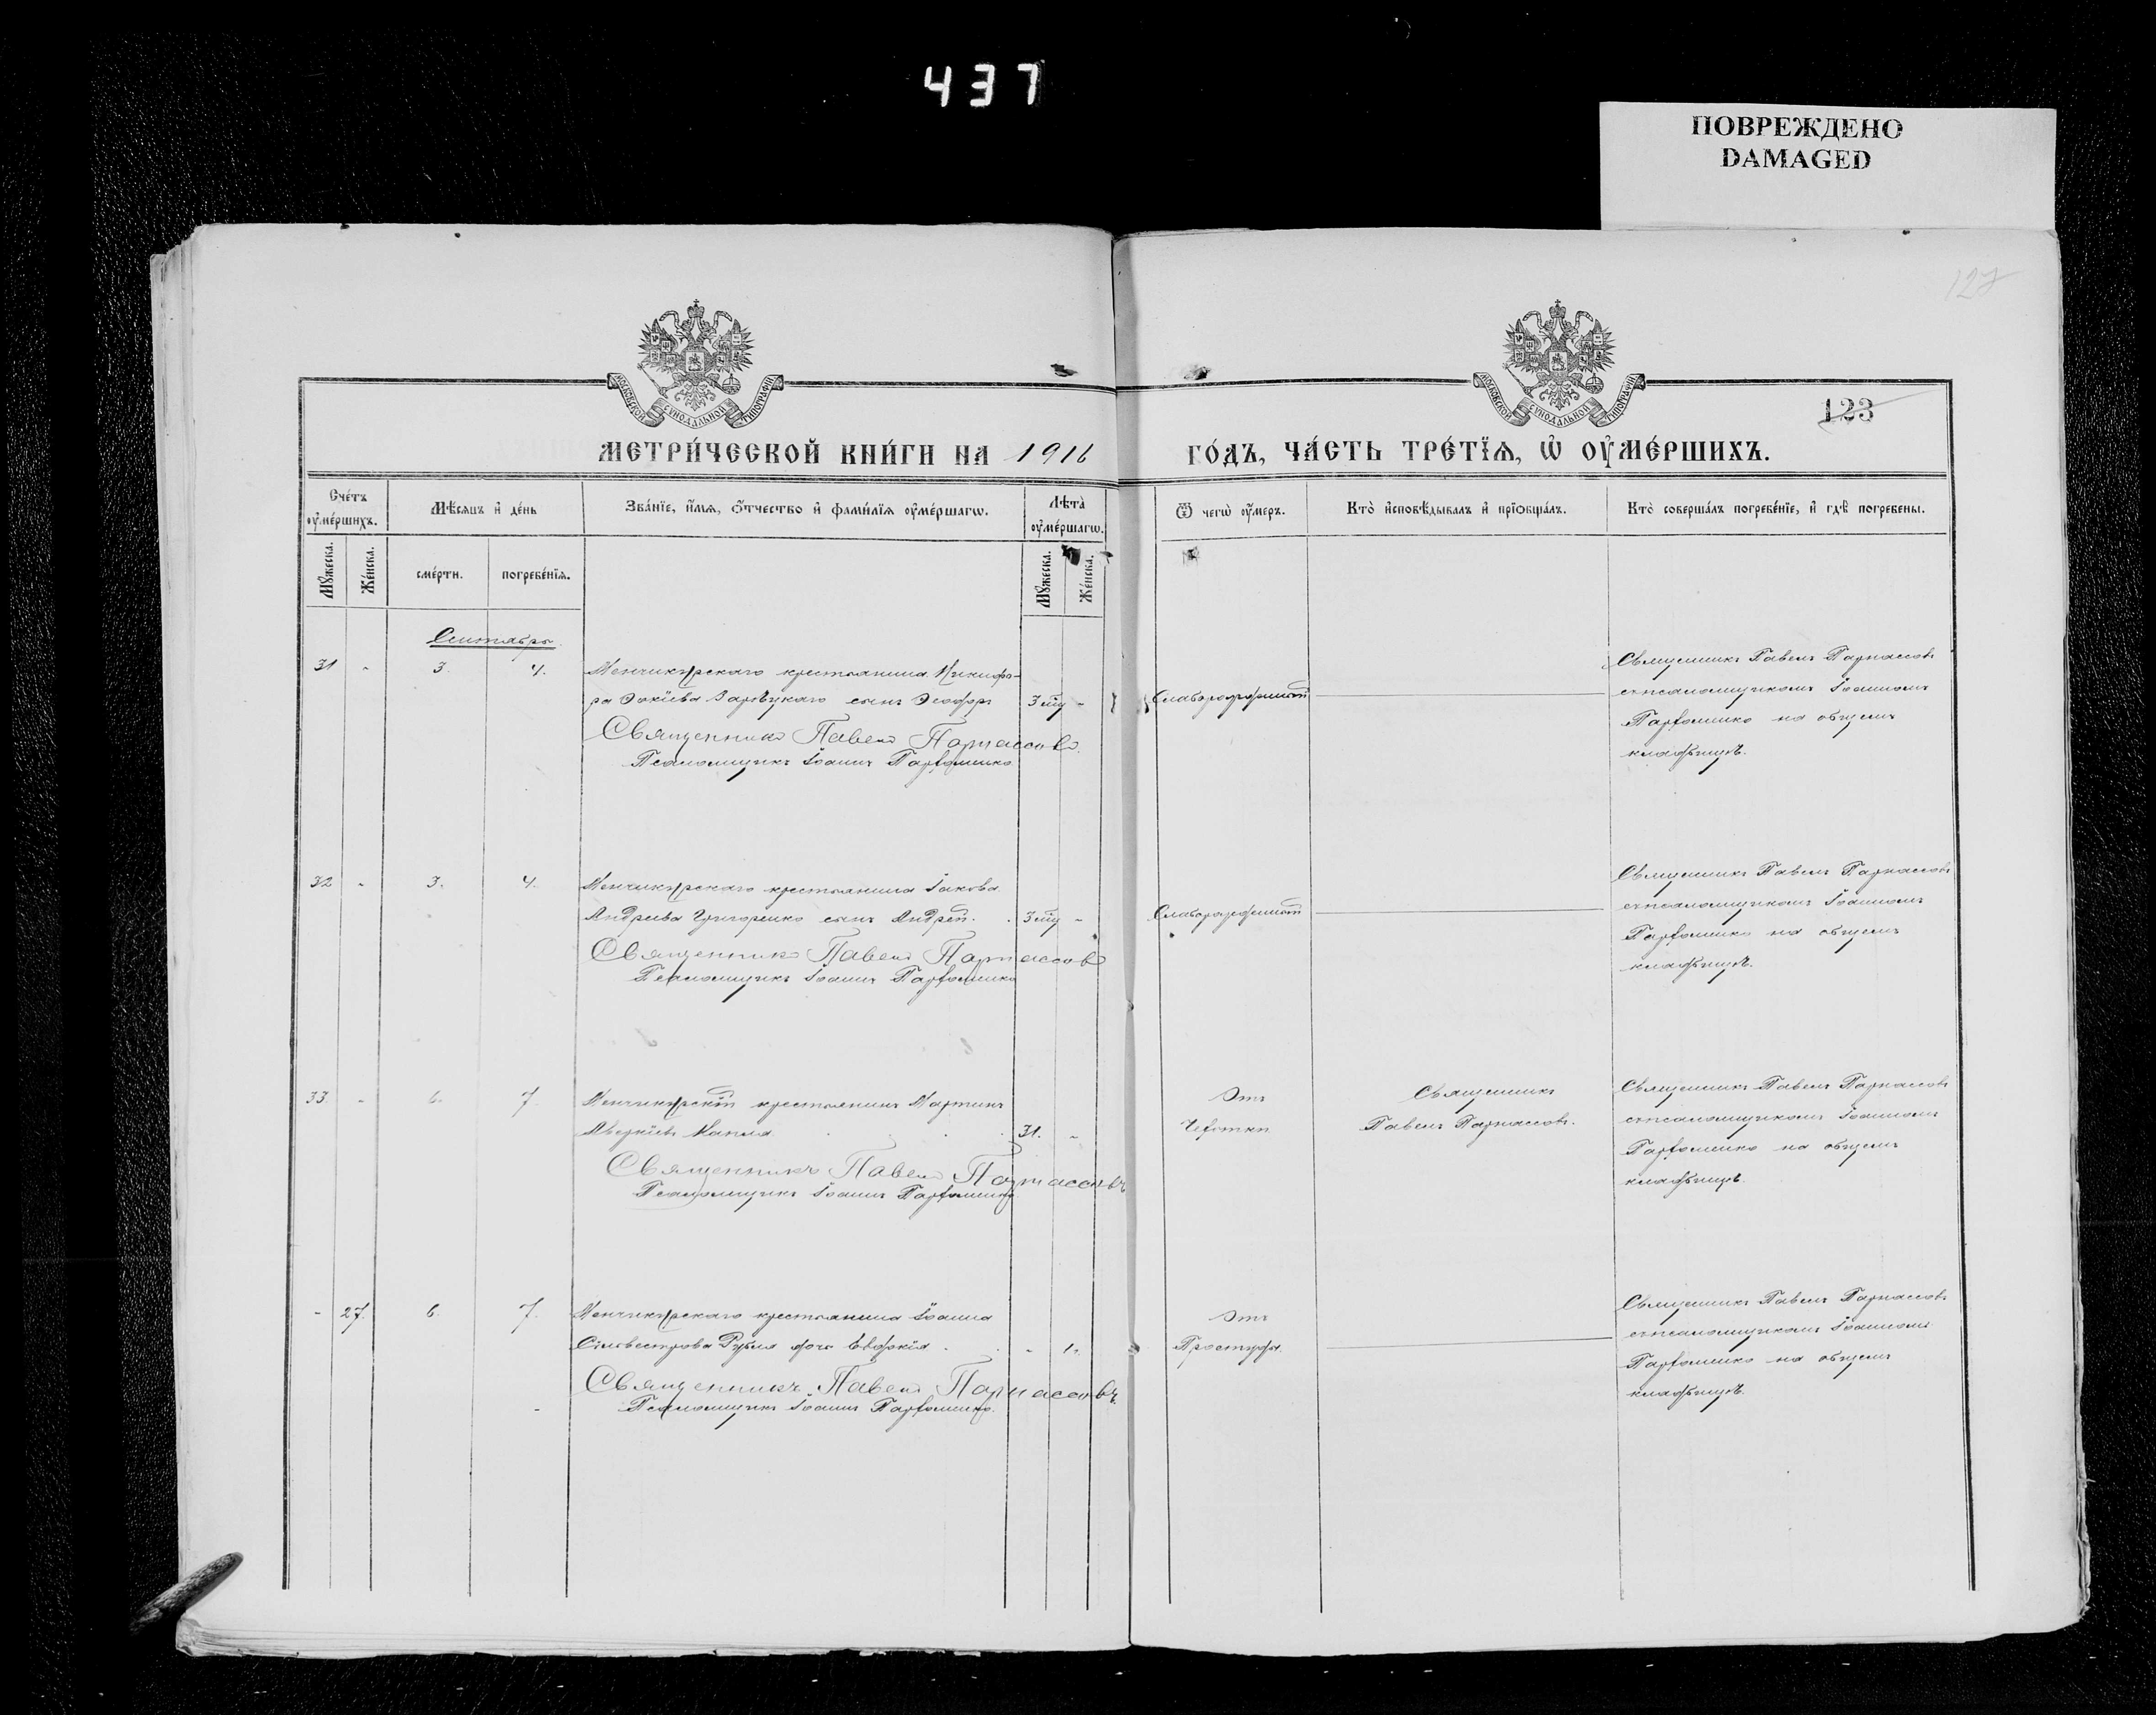 437
ПОВРЕЖДЕНО
DAMAGED
127
МОСКОВСКОЙ СУНОДАЛЬНОЙ ТИПОГРАФІИ
МОСКОВСКОЙ СУНОДАЛЬНОЙ ТИПОГРАФІИ
123
МЕТРИ́ЧЕСКОЙ КНИ́ГИ НА 1916 ГО́ДЪ, ЧА́СТЬ ТРЕ́ТЇѦ, Ѡ҆ ОУ҆МЕ́РШИХЪ.
Сче́тъ оу҆ме́ршихъ.
Мꙋ́жеска.
Же́нска.
Мѣ́сяцъ и҆ де́нь
сме́рти.
погребе́нїѧ.
Зва́нїе, и҆́мѧ, ѻ҆́тчество и҆ фами́лїѧ оу҆ме́ршагѡ.
Лѣта̀ оу҆ме́ршагѡ.
Мꙋ́жеска.
Же́нска.
Ѿ чегѡ̀ оу҆́меръ.
Кто̀ и҆сповѣ́дывалъ и҆ прїѻбща́лъ.
Кто̀ соверша́лъ погребе́нїе, и҆ гдѣ̀ погребены.
Сентябрь.
31 - 3. 4. Менчикурскаго крестьянина Никифо-
ра сынъ Ѳеодоръ
Священникъ Павелъ Парнассовъ.
Псаломщикъ Іоаннъ Пархоменко.
Слаборожденной
Священникъ Павелъ Парнассовъ
съ псаломщикомъ Іоанномъ
Пархоменко на общемъ
кладбищѣ.
32 - 3. 4. Менчикурскаго крестьянина Іакова
Андреева Григоренко сынъ Андрей.
Священникъ Павелъ Парнассовъ
Псаломщикъ Іоаннъ Пархоменко
Слаборожденной
Священникъ Павелъ Парнассовъ
съ псаломщикомъ Іоанномъ
Пархоменко на общемъ
кладбищѣ.
33. - 6. 7. Менчикурскій крестьянинъ Мартинъ
Аверкіевъ 31. -
Священникъ Павелъ Парнассовъ
Псаломщикъ Іоаннъ Пархоменко
Отъ
Чахотки
Священникъ
Павелъ Парнассовъ.
Священникъ Павелъ Парнассовъ
съ псаломщикомъ Іоанномъ
Пархоменко на общемъ
кладбищѣ.
- 27. 6. 7. Менчикурскаго крестьянина Іоанна
Сильвестрова дочь Евдокія - 1.
Священникъ Павелъ Парнассовъ.
Псаломщикъ Іоаннъ Пархоменко.
Отъ
Простуды.
Священникъ Павелъ Парнассовъ
съ псаломщикомъ Іоанномъ
Пархоменко на общемъ
кладбищѣ.